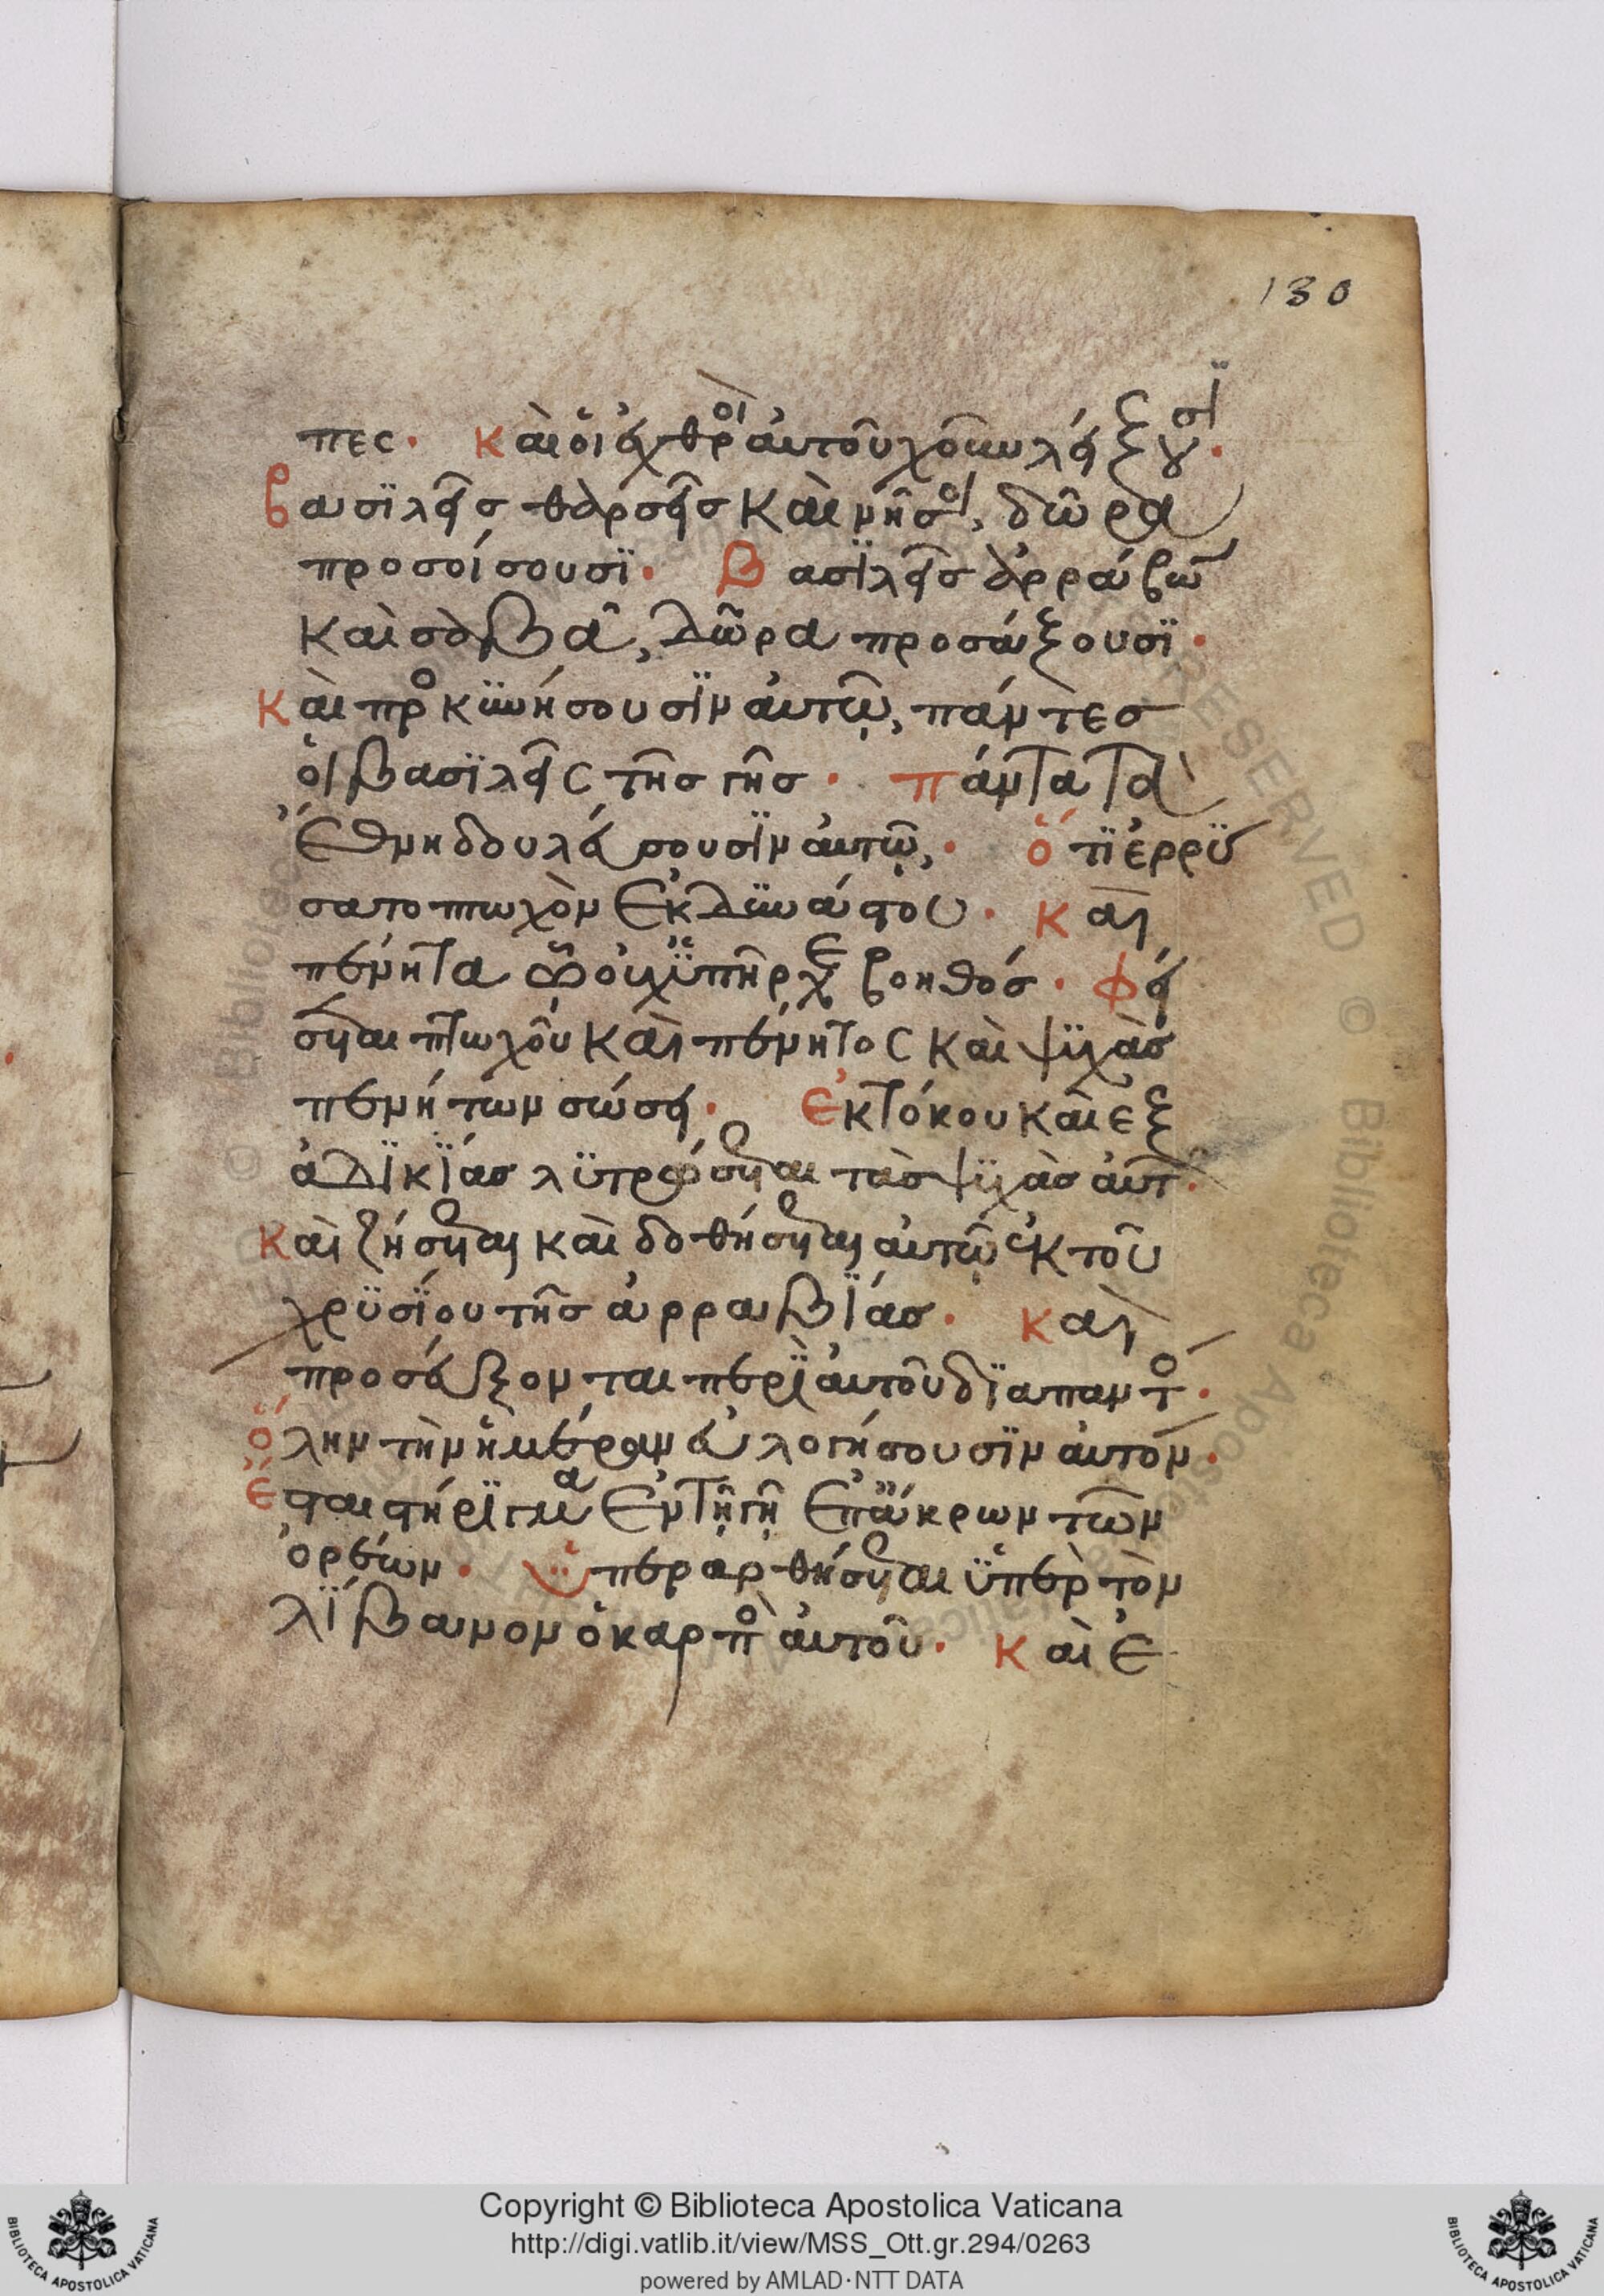 130
πες· καὶ οἱ ἐχθροὶ αὐτοῦ χοῦν λείξουσϊ·
βασϊλεῖς θαρσεῖς καὶ νῆσοι, δῶρα
προσοίσουσϊ· Βασϊλεῖς ἀρράβων
καὶ σαβᾶ, δῶρα προσάξουσϊ·
Καὶ προσκϋνήσουσϊν αὐτῷ, πάντες
οἱ βασϊλεῖς τῆς γῆς· πάντα τὰ
ἔθνη δουλεύσουσϊν αὐτῷ,· ὅτϊ ἐρρΰ
σατο πτωχὸν ἐκ δϋνάστου· καὶ
πένητα ᾧ οὐχ ϋπῆρχε βοηθός· φεί
σεται πτωχοῦ καὶ πένητος καὶ ψϋχὰς
πενήτων σώσει· ἐκ τόκου καὶ ἐξ
ἀδϊκΐας λϋτρώσεται τὰς ψϋχὰς αὐτ·
Καὶ ζήσεται καὶ δοθήσεται αὐτῷ ἐκ τοῦ
χρϋσΐου τῆς ἀρραβΐας· καὶ
προσεύξονται περὶ αὐτοῦ δϊαπαντὸ·
ὅλην τὴν ἡμέραν εὐλογήσουσϊν αὐτόν·
ἔσται στήρϊγμα ἐν τῇ γῇ ἐπ ἄκρων τῶν
ὀρέων· ὑπεραρθήσεται ὑπὲρ τὸν
λΐβανον ὁ καρπὸ αὐτοῦ· καὶ ἐ
Copyright © Biblioteca Apostolica Vaticana
http://digi.vatlib.it/view/MSS_Ott.gr.294/0263
powered by AMLAD·NTT DATA
BIBLIOTECA APOSTOLICA VATICANA
BIBLIOTECA APOSTOLICA VATICANA